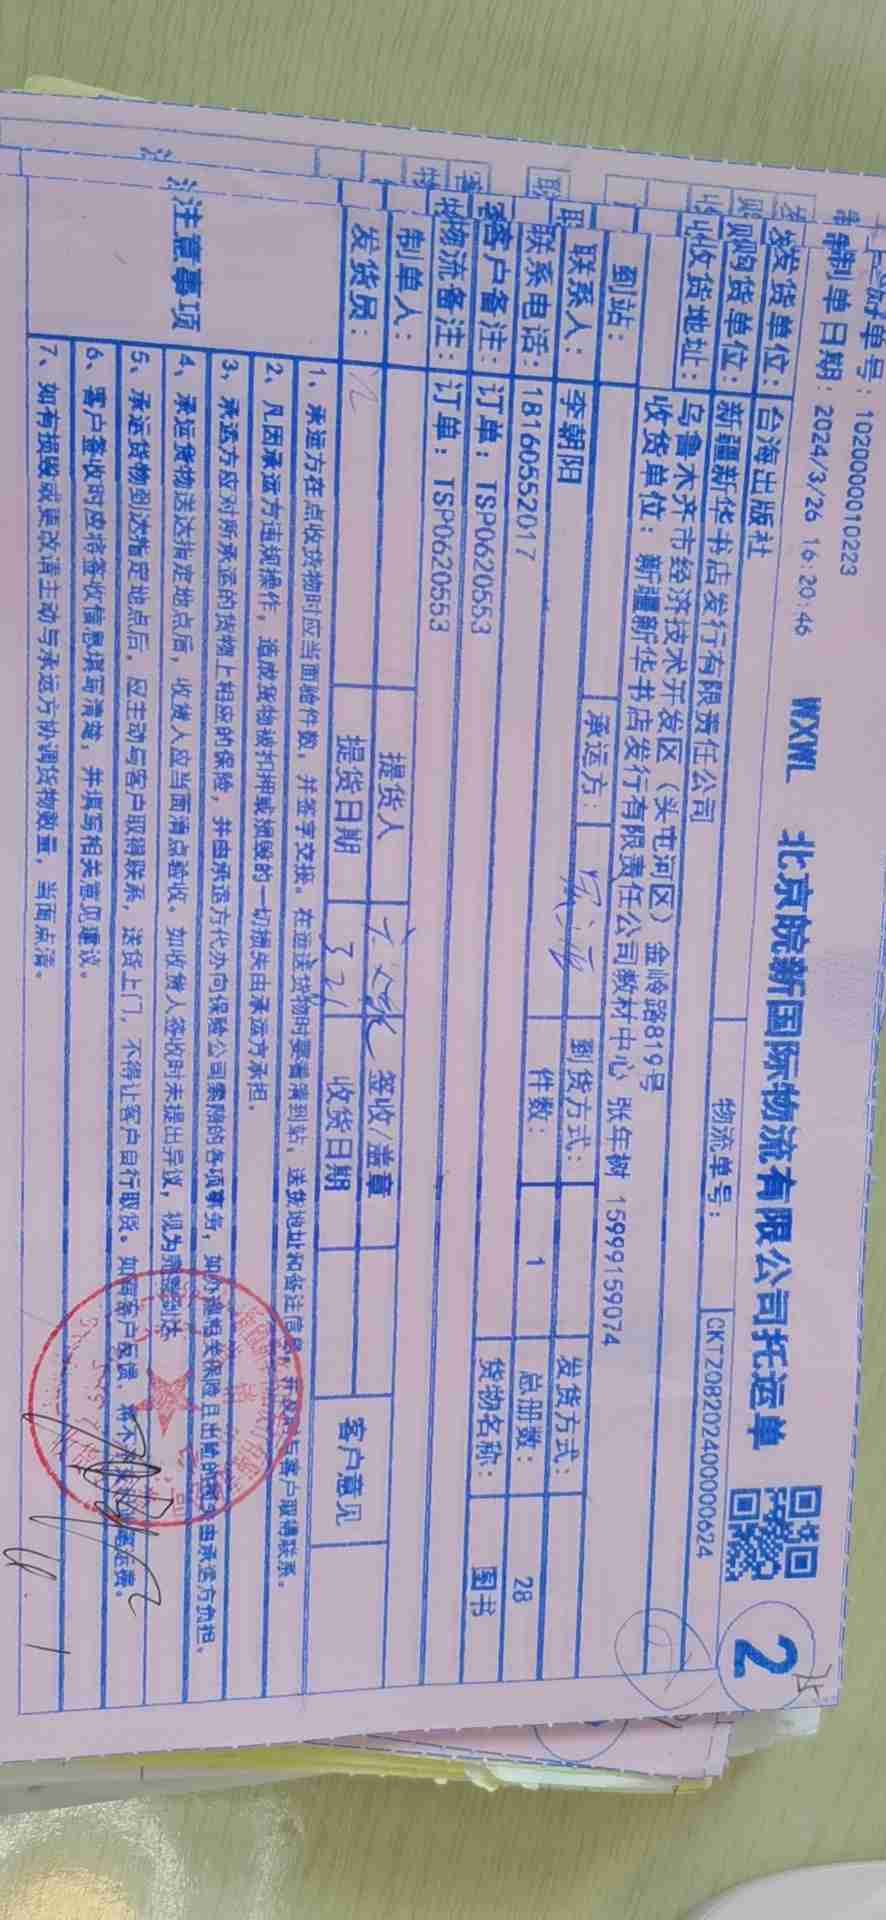 单号：1020000010223
制单日期：2024/3/26 16:20:46
WXWL 北京皖新国际物流有限公司托运单
2
发货单位：台海出版社
物流单号：CKTZ08202400000624
购货单位：新疆新华书店发行有限责任公司
收货地址：乌鲁木齐市经济技术开发区（头屯河区）金岭路819号
收货单位：新疆新华书店发行有限责任公司教材中心 张年树 15999159074
到站： 承运方： 到货方式： 发货方式：
联系人：李朝阳 件数：1 总册数：28
联系电话：18160552017 货物名称：图书
客户备注：订单：TSP0620553
物流备注：订单：TSP0620553
制单人： 提货人 签收/盖章 客户意见
发货员： 提货日期 收货日期
注意事项
1、承运方在点收货物时应当面验件数，并签字交接。在运送货物时要看清到站，送货地址和备注信息，并及时与客户取得联系。
2、凡因承运方违规操作，造成货物被扣押或损毁的一切损失由承运方承担。
3、承运方应对所承运的货物上相应的保险，并由承运方代办向保险公司索赔的各项事务，如办理相关保险且出险的由承运方负担。
4、承运货物送达指定地点后，收货人应当面清点验收。如收货人签收时未提出异议，视为完整到达
5、承运货物到达指定地点后，应主动与客户取得联系，送货上门，不得让客户自行取货。如有客户反馈，
6、客户签收时应将签收信息填写清楚，并填写相关意见建议。
7、如有损毁或更改请主动与承运方协调货物数量，当面点清。